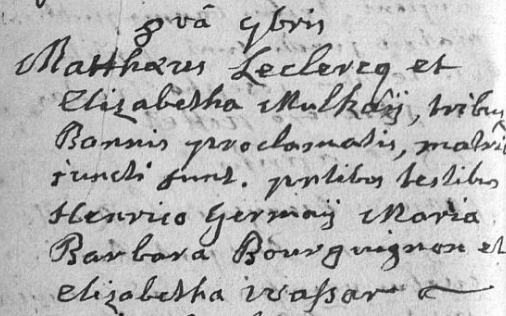 3 vâ 9bris
Matthæus Leclercq et
Elizabetha Mulkaÿ, tribus
Bannis proclamatis, matrio
juncti sunt. pntibus testibus
Henrico Germaÿ Maria
Barbara Bourguignon et
Elizabetha waßar